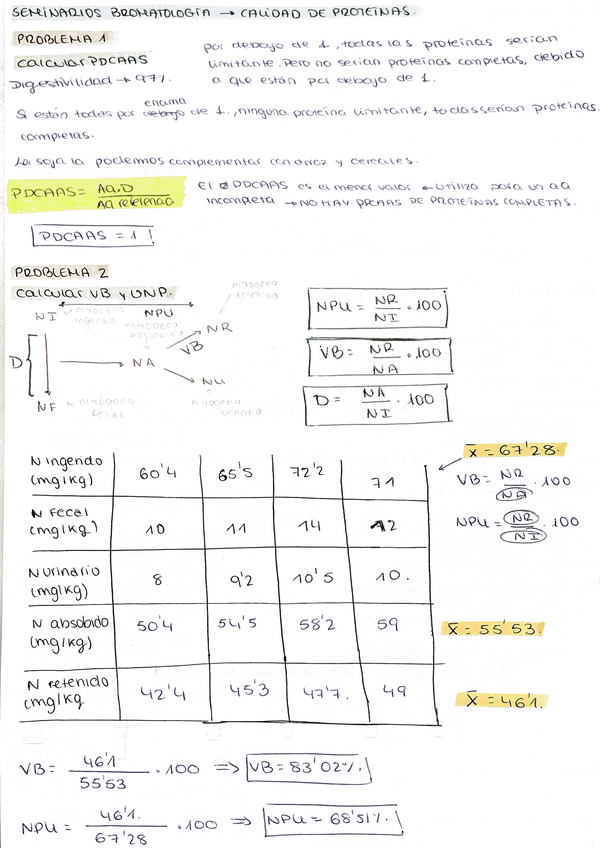 SEMINARIOS BROMATOLOGÍA → CALIDAD DE PROTEÍNAS.
PROBLEMA 1
Calcular PDCAAS
Digestividad → 97%.
por debajo de 1, todas las proteínas serían
limitante. Pero no serían proteínas completas, debido
a que están por debajo de 1.
Si están todas por encima de 1., ninguna proteína limitante, todas serían proteínas
completas.
La soja la podemos complementar con arroz y cereales.
PDCAAS = Aa.D / Aa referencia
El PDCAAS es el menor valor ← utiliza para un aa
incompleta → NO HAY PDCAAS DE PROTEÍNAS COMPLETAS.
PDCAAS = 1
PROBLEMA 2
Calcular VB y UNP.
nitrógeno retenido
NI nitrógeno ingerido NPU
nitrógeno absorbido NR
D NA VB
NU
NF nitrógeno fecal nitrógeno urinario
NPU = NR / NI · 100
VB = NR / NA · 100
D = NA / NI · 100
N ingerido (mg/kg) 60'4 65'5 72'2 71
N fecal (mg/kg) 10 11 14 12
N urinario (mg/kg) 8 9'2 10'5 10.
N absobido (mg/kg) 50'4 54'5 58'2 59
N retenido (mg/kg 42'4 45'3 47'7. 49
x̄ = 67'28.
VB = NR / NA · 100
NPU = NR / NI · 100
x̄ = 55'53.
x̄ = 46'1.
VB = 46'1 / 55'53 · 100 ⇒ VB = 83'02%.
NPU = 46'1. / 67'28 · 100 ⇒ NPU = 68'51%.